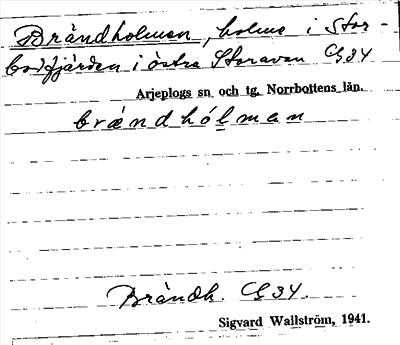 Brändholmen, holme i Stor-
bodfjärden i östra Storavan Cg 34
Arjeplogs sn och tg, Norrbottens län.
brændhólman
Brändh. Cg 34.
Sigvard Wallström, 1941.